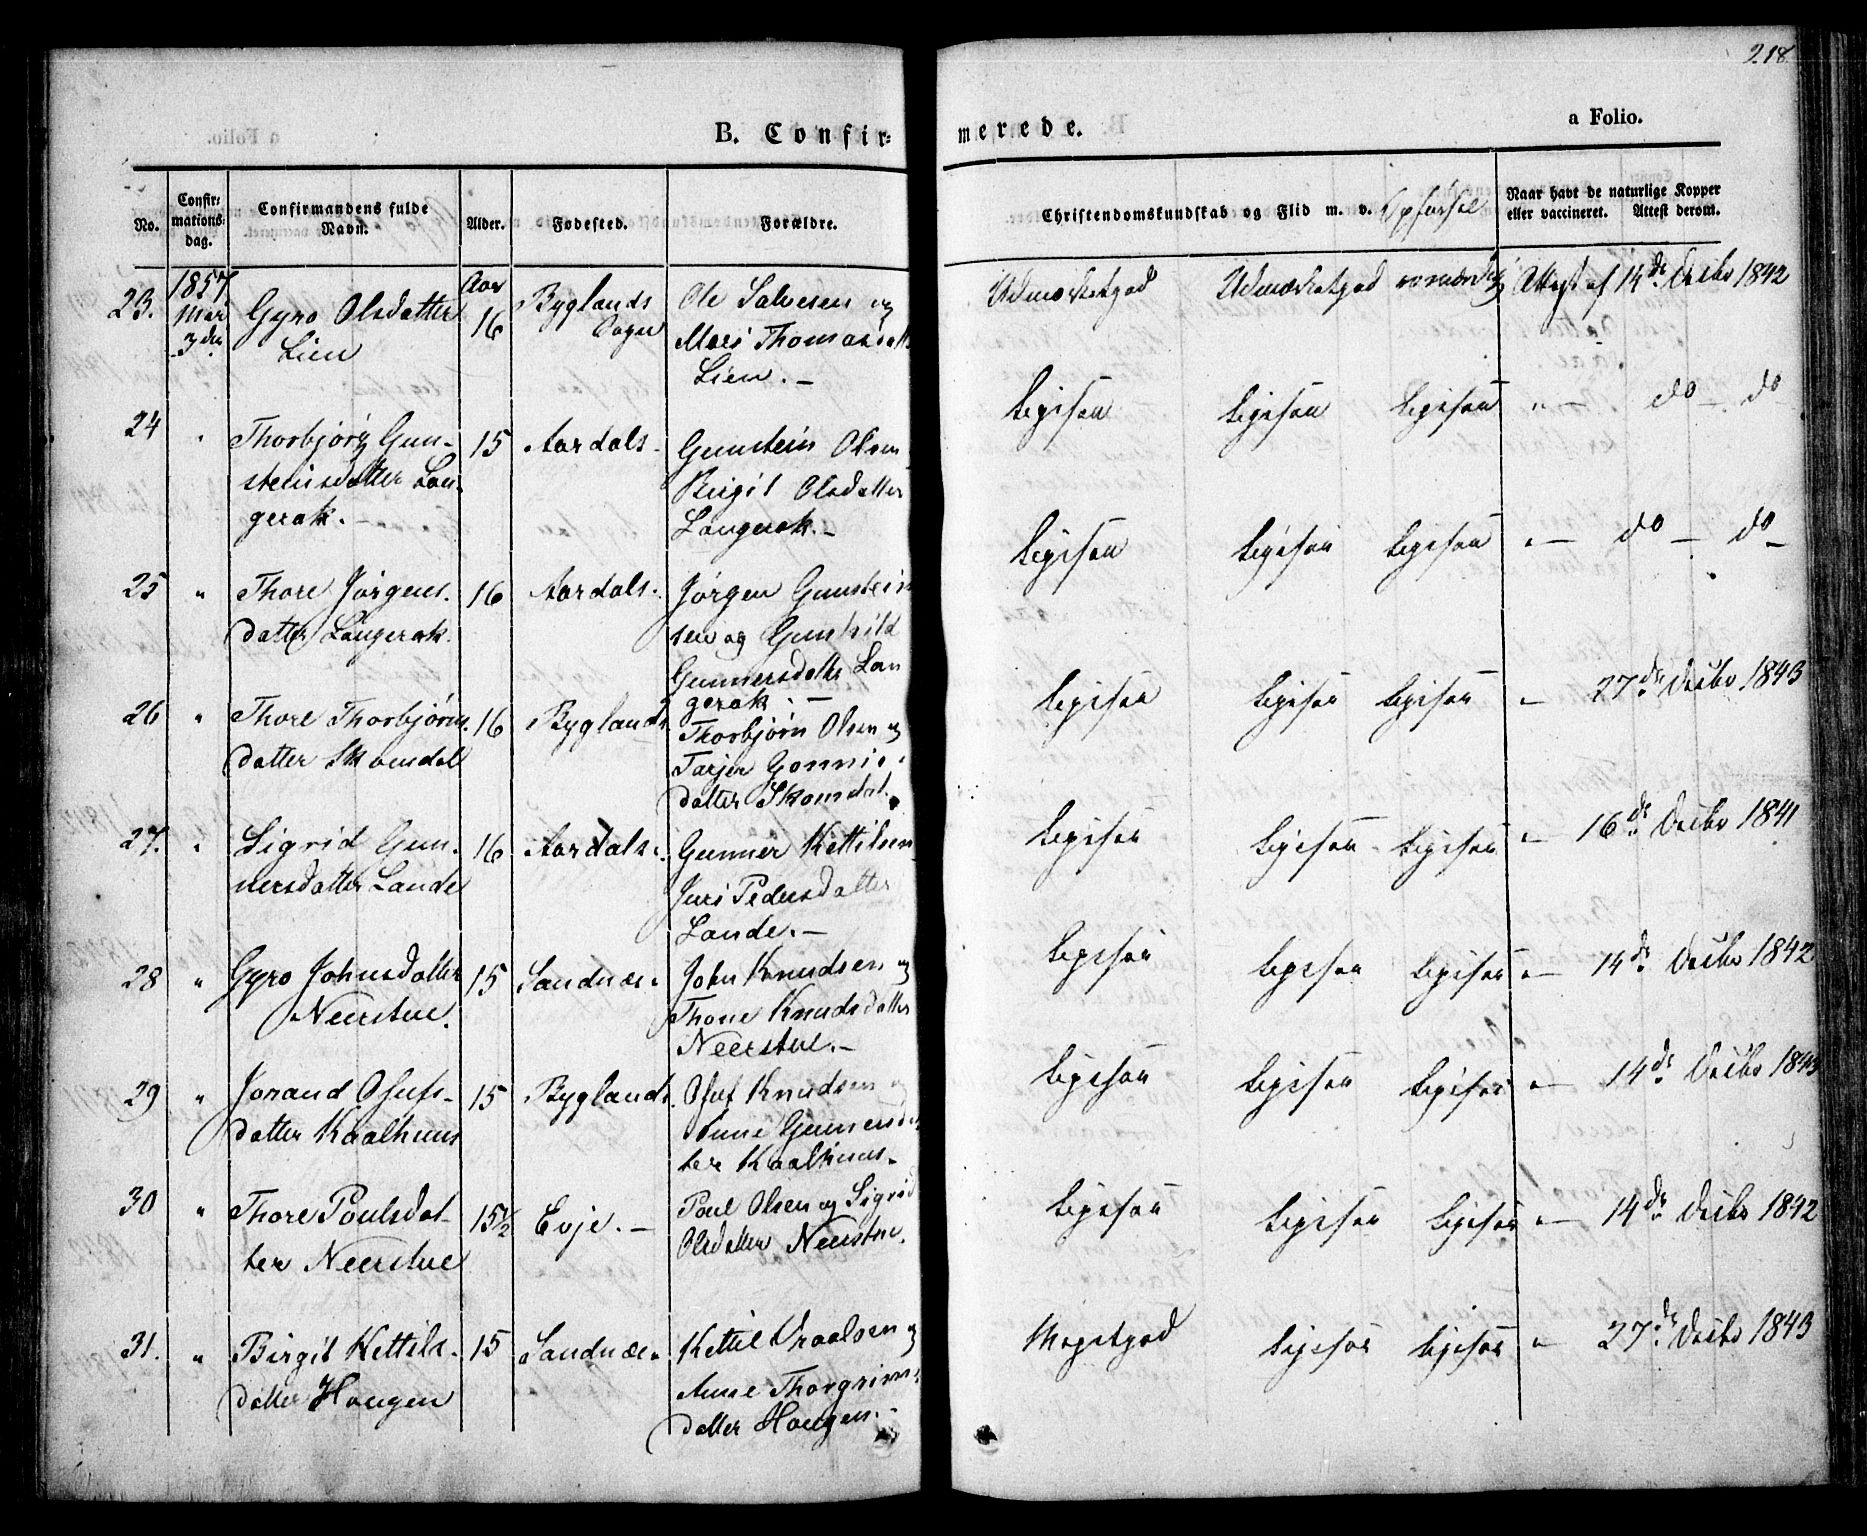 218
a Folio.
B. Confir-
merede.
No.
Confir-
mations-
dag.
Confirmandens fulde
Navn.
Alder.
Fødested.
Forældre.
Christendomskundskab og Flid m. v. Opførsel
Naar havt de naturlige Kopper
eller vaccineret. Attest derom.
23.
1857
Mai
3die
Gyro Olsdatter
Lien
Aar
16
Byglands
Sogn
Ole Salvesen og
Mari Thomasdatt
Lien. -
Udmærketgod Udmærketgod Attest af 14de Decbr 1842
24
Thorbjørg Gun-
steinsdatter Lan-
gerak. -
15
Aardals
Gunstein Olsen
Birgit Olsdatter
Langerak. -
Ligesaa Ligesaa Ligesaa " - do - do
25 "
Thore Jørgens-
datter Langerak.
16
Aardals.
Jørgen Gunstein
sen og Gunhild
Gunnersdatter Lan
gerak. -
Ligesaa Ligesaa Ligesaa " - do - do -
26 "
Thore Thorbjørns-
datter Skomdal
16
Byglands.
Thorbjørn Olsen og
Tarjer
datter Skomdal.
Ligesaa Ligesaa Ligesaa " - 27de Decbr 1843
27. "
Sigrid Gun-
nersdatter Lande
16
Aardals.
Gunner Kettilsen
Juri Pedersdatter
Lande. -
Ligesaa Ligesaa - Ligesaa " - 16de Decbr 1841
28 "
Gyro Johnsdatter
Neerstue.
15
Sandnæs
John Knudsen og
Thone Knudsdatter
Neerstue. -
Ligesaa Ligesaa Ligesaa " - 14de Decbr 1842
29 "
Jorand Olufs-
datter Kaalhuus
15
Byglands.
Oluf Knudsen og
Anne Gunnersdat
ter Kaalhuus -
Ligesaa Ligesaa Ligesaa " - 14de Decbr 1843
30 "
Thore Poulsdat-
ter Neerstue
15½
Evje. -
Poul Olsen og Sigrid
Olsdatter Neerstue.
Ligesaa Ligesaa Ligesaa " - 14de Decbr 1842
31. "
Birgit Kettils-
datter Haugen
15
Sandnæs
Kettil Vraalsen og
Anne Thorgrims-
datter Haugen. -
Megetgod Ligesaa Ligesaa " - 27de Decbr 1843